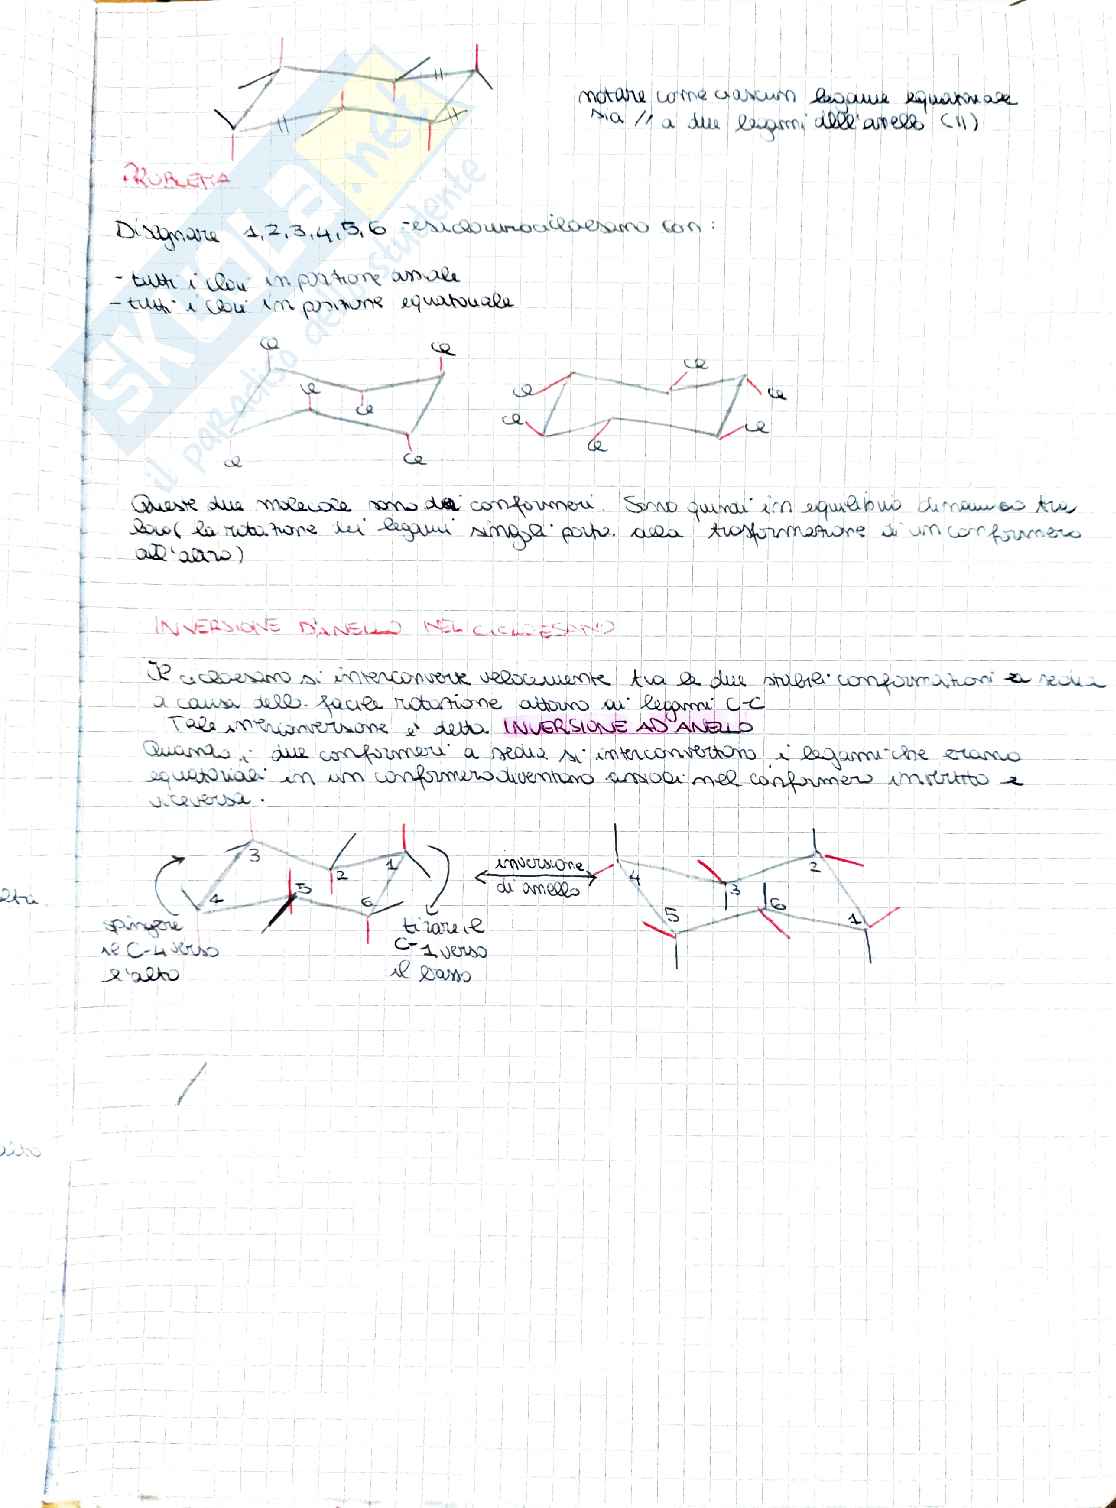 notare come ciascun legame equatoriale
sia // a due legami dell'anello (//)
PROBLEMA
Disegnare 1,2,3,4,5,6 -esaclorocicloesano con:
- tutti i clori in posizione assiale
- tutti i clori in posizione equatoriale
Cl Cl Cl Cl
Cl Cl Cl Cl
Cl Cl Cl Cl
Queste due molecole sono dei conformeri. Sono quindi in equilibrio dinamico tra
loro (la rotazione dei legami singoli porta alla trasformazione di un conformero
all'altro)
INVERSIONE D'ANELLO NEL CICLOESANO
Il cicloesano si interconverte velocemente tra le due stabili conformazioni a sedia
a causa della facile rotazione attorno ai legami C-C
Tale interconversione è detta INVERSIONE AD ANELLO
Quando i due conformeri a sedia si interconvertono, i legami che erano
equatoriali in un conformero diventano assiali nel conformero invertito e
viceversa.
3 2 1 4 5 6
inversione
di anello
4 3 2 5 6 1
spingere
il C-4 verso
l'alto
tirare il
C-1 verso
il basso
SKUOLA.net
il paradiso dello studente